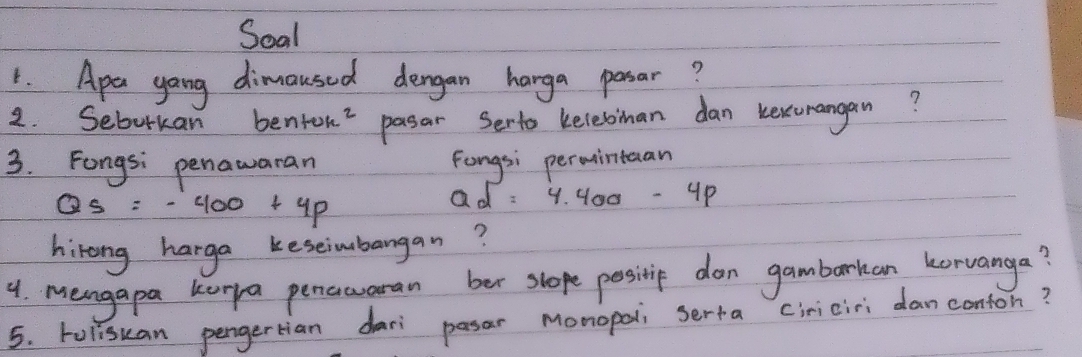 Soal
1. Apa yang dimaksud dengan harga pasar ?
2. Sebutkan bentuk² pasar Serta kelebihan dan kekurangan ?
3. Fungsi penawaran Fungsi permintaan
Qs = - 400 + 4p Qd = 4.400 - 4p
hitong harga keseimbangan ?
4. Mengapa kurpa penawaran ber slope positif dan gambarkan korvanga?
5. tuliskan pengertian dari pasar Monopoli serta ciri ciri dan contoh ?